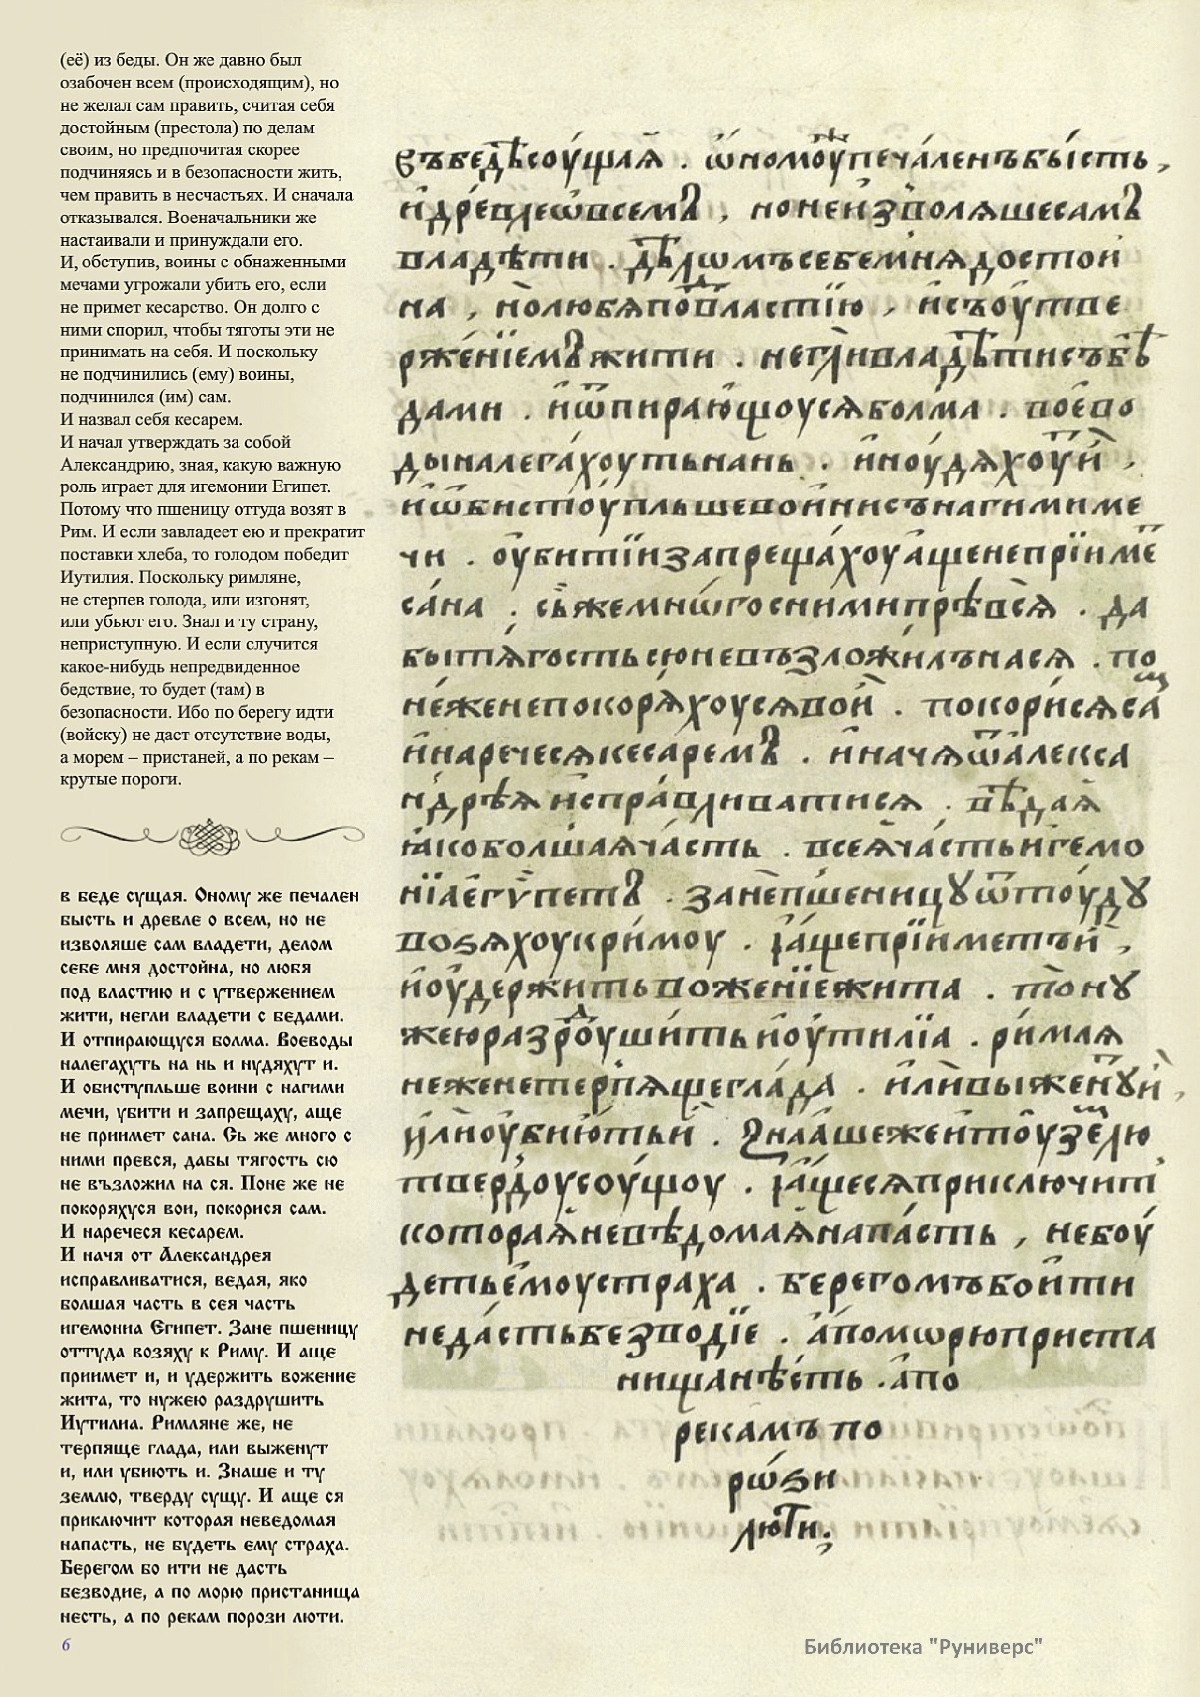 (её) из беды. Он же давно был
озабочен всем (происходящим), но
не желал сам править, считая себя
достойным (престола) по делам
своим, но предпочитая скорее
подчиняясь и в безопасности жить,
чем править в несчастьях. И сначала
отказывался. Военачальники же
настаивали и принуждали его.
И, обступив, воины с обнаженными
мечами угрожали убить его, если
не примет кесарство. Он долго с
ними спорил, чтобы тяготы эти не
принимать на себя. И поскольку
не подчинились (ему) воины,
подчинился (им) сам.
И назвал себя кесарем.
И начал утверждать за собой
Александрию, зная, какую важную
роль играет для игемонии Египет.
Потому что пшеницу оттуда возят в
Рим. И если завладеет ею и прекратит
поставки хлеба, то голодом победит
Иутилия. Поскольку римляне,
не стерпев голода, или изгонят,
или убьют его. Знал и ту страну,
неприступную. И если случится
какое-нибудь непредвиденное
бедствие, то будет (там) в
безопасности. Ибо по берегу идти
(войску) не даст отсутствие воды,
а морем – пристаней, а по рекам –
крутые пороги.
в беде сущая. Оному же печален
бысть и древле о всем, но не
изволяше сам владети, делом
себе мня достойна, но любя
под властию и с утвержением
жити, негли владети с бедами.
И отпирающуся болма. Воеводы
налегахуть на нь и нудяхут и.
И обиступльше воини с нагими
мечи, убити и запрещаху, аще
не приимет сана. Сь же много с
ними превся, дабы тягость сю
не възложил на ся. Поне же не
покоряхуся вои, покорися сам.
И наречеся кесарем.
И начя от Александрея
исправливатися, ведая, яко
болшая часть в сея часть
игемониа Египет. Зане пшеницу
оттуда возяху к Риму. И аще
приимет и, и удержить вожение
жита, то нужею раздрушить
Иутилиа. Римляне же, не
терпяще глада, или выженут
и, или убиють и. Знаше и ту
землю, тверду сущу. И аще ся
приключит которая неведомая
напасть, не будеть ему страха.
Берегом бо ити не дасть
безводие, а по морю пристанища
несть, а по рекам порози люти.
6
въбедѣсоущая . ѡномоужепечаленъбысть,
идревлеѡвсемъ , нонеизволяшесамъ
владѣти . дѣлѡмъсебемнядостои
на , нолюбяподвластїю , исъоутве
ржениемъжити . негливладѣтисъбѣ
дами . иѿпирающоусяболма . воево
дыналегахоутьнань . иноудяхоуи ,
иѡбистоупльшевоинисънагимиме
чи . оубитїизапрещахоуащенепрїиме
сана . сьжемнѡгоснимипрѣвся . да
бытягостьсюневъзложилънася . по
неженепокоряхоусявои . покорисяса
инаречесякесаремъ . иначяѿалекса
ндрѣяисправливатися . вѣдая
якоболшаячасть . всеячастьигемо
нїаегѵпетъ . занепшеницꙋѿтоудꙋ
возяхоукримоу . иащеприиметьи ,
иоудержитьвоженїежита . тонꙋ
жеюраздроушитьиоутилїа . римля
неженетерпящеглада . иливыженꙋи ,
илиоубиютьи . Знаашежеитоузелю
твердоусоущоу . иащесяприключит
котораяневѣдомаянапасть , небоу
детьемоустраха . берегомъбоити
недастьбезводїе . апомѡрюприста
нищанѣсть . апо
рекамъпо
рѡѕи
люти.
Библиотека "Руниверс"